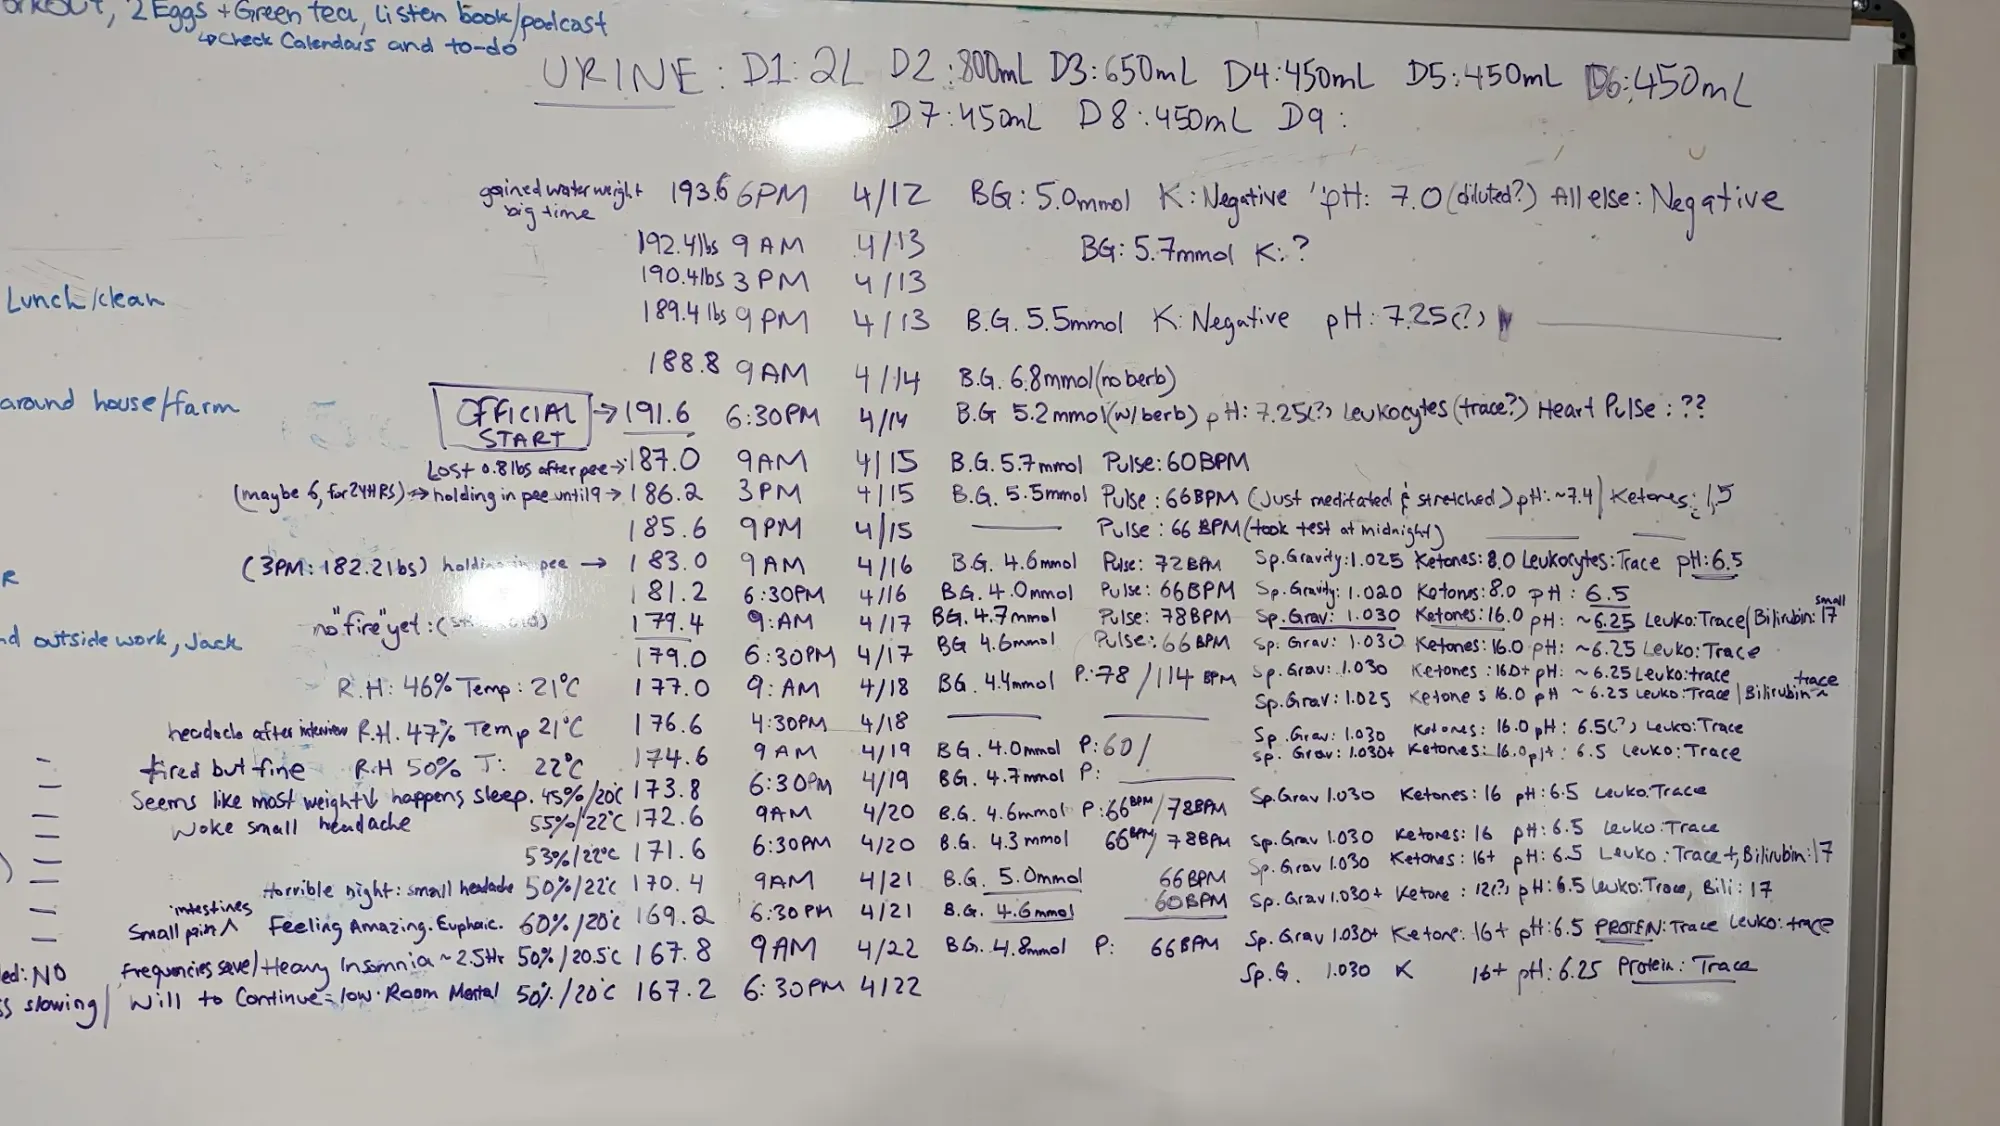 2 Eggs + Green tea, listen book/podcast
↳ Check Calendars and to-do
URINE: D1: 2L D2: 800mL D3: 650mL D4: 450mL D5: 450mL D6: 450mL
D7: 450mL D8: 450mL D9:
gained water weight big time 193.6 6PM 4/12 BG: 5.0mmol K: Negative pH: 7.0 (diluted?) All else: Negative
192.4lbs 9AM 4/13 BG: 5.7mmol K: ?
190.4lbs 3PM 4/13
Lunch/clean
189.4lbs 9PM 4/13 B.G. 5.5mmol K: Negative pH: 7.25(?)
188.8 9AM 4/14 B.G. 6.8mmol (no berb)
around house/farm
OFFICIAL START → 191.6 6:30PM 4/14 B.G 5.2mmol (w/berb) pH: 7.25(?) Leukocytes (trace?) Heart Pulse: ??
Lost 0.8lbs after pee → 187.0 9AM 4/15 B.G. 5.7mmol Pulse: 60BPM
(maybe 6, for 24HRS) → holding in pee until 9 → 186.2 3PM 4/15 B.G. 5.5mmol Pulse: 66BPM (Just meditated & stretched) pH: ~7.4 | Ketones: 1.5
185.6 9PM 4/15 — Pulse: 66 BPM (took test at midnight)
(3PM: 182.2lbs) holding in pee → 183.0 9AM 4/16 B.G. 4.6mmol Pulse: 72BPM Sp. Gravity: 1.025 Ketones: 8.0 Leukocytes: Trace pH: 6.5
181.2 6:30PM 4/16 B.G. 4.0mmol Pulse: 66BPM Sp. Gravity: 1.020 Ketones: 8.0 pH: 6.5
no "fire" yet :( 179.4 9:AM 4/17 BG. 4.7mmol Pulse: 78BPM Sp. Grav: 1.030 Ketones: 16.0 pH: ~6.25 Leuko: Trace | Bilirubin: small 17
outside work, Jack
179.0 6:30PM 4/17 BG 4.6mmol Pulse: 66BPM Sp. Grav: 1.030 Ketones: 16.0 pH: ~6.25 Leuko: Trace
R.H: 46% Temp: 21°C 177.0 9:AM 4/18 BG. 4.4mmol P: 78/114 BPM Sp. Grav: 1.030 Ketones: 16.0+ pH: ~6.25 Leuko: trace
Sp. Grav: 1.025 Ketones 16.0 pH ~6.25 Leuko: Trace | Bilirubin~ trace
headache after interview R.H. 47% Temp 21°C 176.6 4:30PM 4/18 — — Sp. Grav: 1.030 Ketones: 16.0 pH: 6.5(?) Leuko: Trace
tired but fine R.H 50% T: 22°C 174.6 9AM 4/19 BG. 4.0mmol P: 60/ Sp. Grav: 1.030+ Ketones: 16.0 pH: 6.5 Leuko: Trace
Seems like most weight↓ happens sleep. 45%/20°C 173.8 6:30PM 4/19 BG. 4.7mmol P: — Sp. Grav 1.030 Ketones: 16 pH: 6.5 Leuko: Trace
Woke small headache 55%/22°C 172.6 9AM 4/20 B.G. 4.6mmol P: 66BPM/78BPM
53%/22°C 171.6 6:30PM 4/20 B.G. 4.3mmol 66BPM/78BPM Sp. Grav 1.030 Ketones: 16 pH: 6.5 Leuko: Trace
Sp. Grav 1.030 Ketones: 16+ pH: 6.5 Leuko: Trace+, Bilirubin: 17
Horrible night: small headache 50%/22°C 170.4 9AM 4/21 B.G. 5.0mmol 66BPM Sp. Grav 1.030+ Ketone: 12(?) pH: 6.5 Leuko: Trace, Bili: 17
Small pain ^ intestines Feeling Amazing. Euphoric. 60%/20°C 169.2 6:30PM 4/21 B.G. 4.6mmol 60BPM
Sp. Grav 1.030+ Ketone: 16+ pH: 6.5 PROTEIN: Trace Leuko: trace
NO Frequencies save/Heavy Insomnia ~2.5Hr 50%/20.5°C 167.8 9AM 4/22 BG. 4.8mmol P: 66BPM
Sp. G. 1.030 K 16+ pH: 6.25 Protein: Trace
slowing/ Will to Continue = low. Room Mental 50%/20°C 167.2 6:30PM 4/22